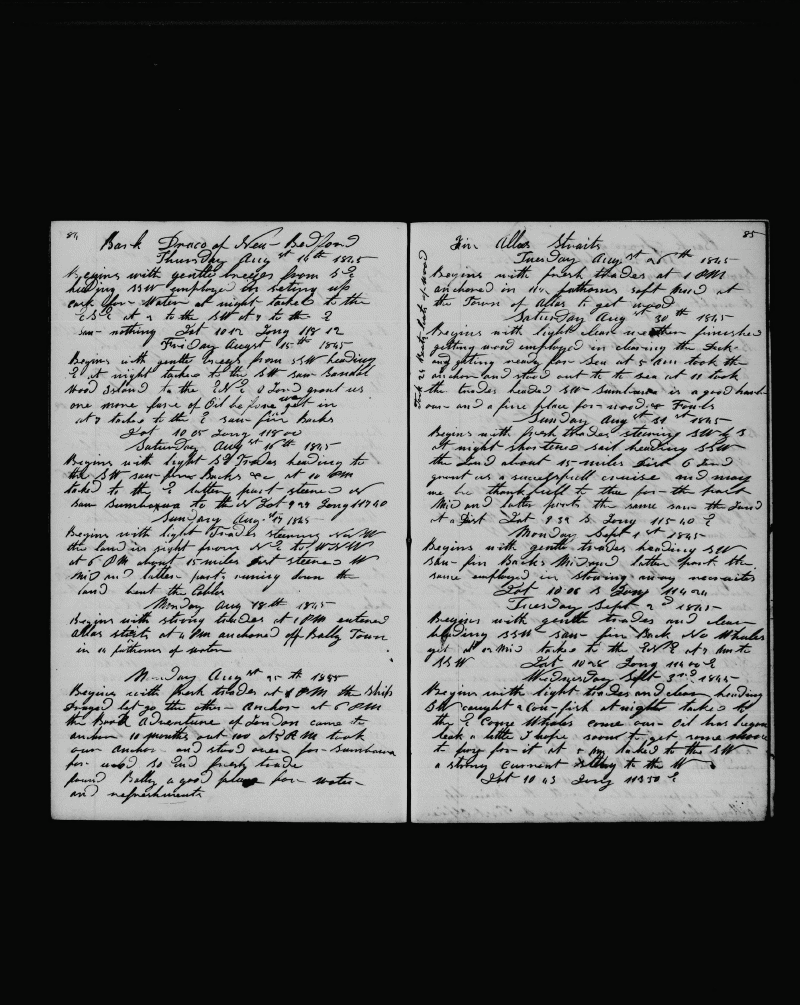 84
Bark Draco of New-Bedford
Thursday Augst 14th 1845
Begins with gentle breezes from SE
heading SSW employed in seting up
cask for Water at night tacked to the
ESE at 2 to the SW at 7 to the E
saw nothing Lat 10 12 Long 118 12
Friday Augst 15th 1845
Begins with gentle from SSW heading
E at night tacked to the SW saw Sandal
Wood Island to the ENE O Lord grant us
one more fare of Oil before we get in
at 7 tacked to the E saw fin Backs
Lat 10 05 Long 118 00
Saturday Augst 16th 1845
Begins with light SE Trades heading to
the SW saw fin Backs &c at 10 PM
tacked to the E latter part steered N
saw Sumbawa to the N Lat 9 29 Long 117 40
Sunday Aug 17 1845
Begins with light Trades steering NW
the land in sight from NE to WNW
at 6 PM about 15 miles Dist steered W
Mid and latter parts runing down the
land bent the Cables
Monday Aug 18th 1845
Begins with strong trades at 1 PM entered
Allas straits at 4 PM anchored off Bally Town
in fathoms of water
Monday Augst 25th 1845
Begins with fresh trades at PM the Ship
Dragged let go the other Anchor at 6 PM
the Bark Adventure of London came to
anchor 10 months out 100 at 5 AM took
our anchor and stood over for Sumbawa
for wood So End fresh trade
found Bally a good place for water
and refreshments

85
In Allas Straits
Tuesday Augst 26th 1845
Begins with fresh trades at 1 PM
anchored in fathoms soft mud at
the Town of Allas to get wood
Took 23 Boats loads of wood
Saturday Augst 30th 1845
Begins with light clear weather finished
getting wood employed in clearing the Deck
and getting ready for Sea at 5 AM took the
anchor and stood out to sea at 11 took
the trades headed SW Sumbawa is a good harb
our and a fine place for wood & Fowls
Sunday Augst 31st 1845
Begins with fresh trades steering SW & S
at night shortened sail heading SSW
the Land about 15 miles Dist O Lord
grant us a successfull cruise and may
we be thankfull to thee for the past
Mid and Latter parts the same saw the Land
at a Dist Lat 9 59 S Long 115 40 E
Monday Sept 1st 1845
Begins with gentle trades heading SW
saw fin Backs Mid and Latter part the
same employed in stowing away
Lat 10 06 S Long 114 24
Tuesday Sept 2d 1845
Begins with gentle trades and clear
heading SSW saw fin Back No Whales
yet at Mid tacked to the ENE at 7 AM to
SSW Lat 10 28 Long 114 00 E
Wednesday Sept 3rd 1845
Begins with light trades and clear heading
SW caught a Cow-fish at night tacked to
the E Come Whales come our Oil has begun
leak a little I hope soon to get some more
to pay for it at 5 AM tacked to the SW
a strong current to the W
Lat 10 43 Long 113 50 E